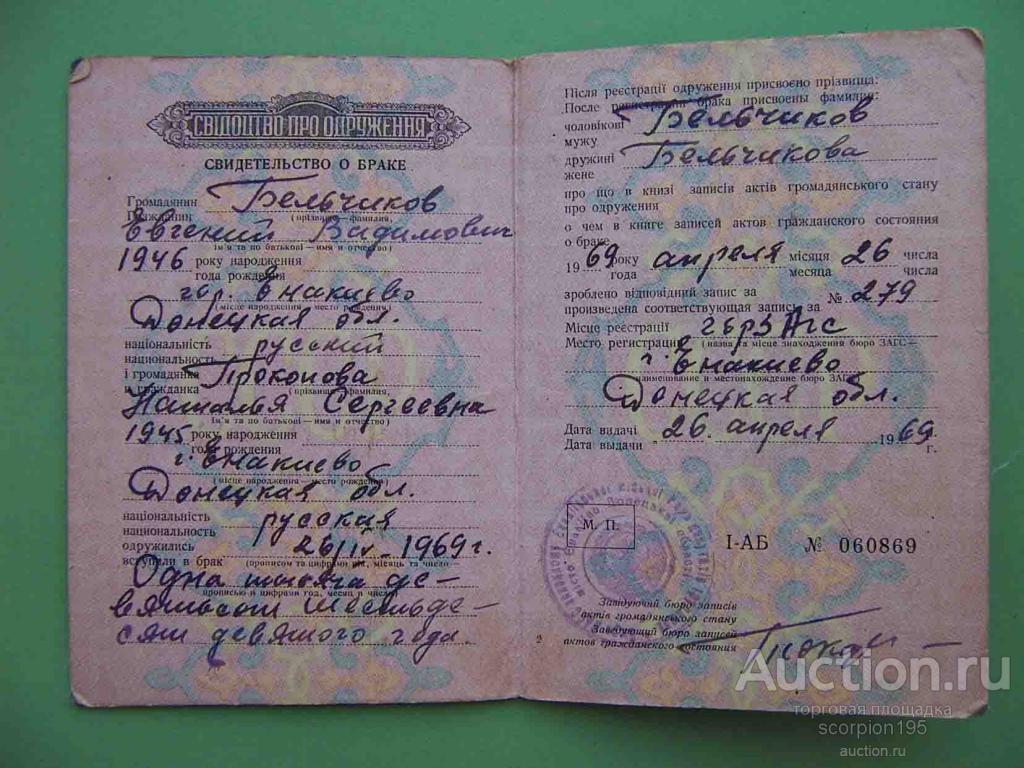 СВІДОЦТВО ПРО ОДРУЖЕННЯ
СВИДЕТЕЛЬСТВО О БРАКЕ
Громадянин Бельчиков
Гражданин (прізвище—фамилия,
Евгений Вадимович
ім'я та по батькові—имя и отчество)
1946 року народження
года рождения
гор. Енакиево
(місце народження—место рождения)
Донецкая обл.
національність русский
национальность
і громадянка Прокопова
и гражданка (прізвище—фамилия,
Наталья Сергеевна
ім'я та по батькові—имя и отчество)
1945 року народження
года рождения
г. Енакиево
(місце народження—место рождения)
Донецкая обл.
національність русская
национальность
одружились 26/IV-1969 г.
вступали в брак (прописом та цифрами рік, місяць та число—
Одна тысяча де-
прописью и цифрами год, месяц и число)
вятьсот шестьде-
сят девятого года.
Після реєстрації одруження присвоєно прізвища:
После регистрации брака присвоены фамилии:
чоловікові Бельчиков
мужу
дружині Бельчикова
жене
про що в книзі записів актів громадянського стану
про одруження
о чем в книге записей актов гражданского состояния
о браке
1969 року апреля місяця 26 числа
года месяца числа
зроблено відповідний запис за № 279
произведена соответствующая запись за
Місце реєстрації горЗАГС
Место регистрации (назва та місце знаходження бюро ЗАГС—
г. Енакиево
наименование и местонахождение бюро ЗАГС)
Донецкая обл.
Дата видачі 26. апреля 1969 г.
Дата выдачи
М. П.
I-АБ № 060869
Завідуючий бюро записів
актів громадянського стану
Заведующий бюро записей
актов гражданского состояния
2
Auction.ru
торговая площадка
scorpion195
auction.ru